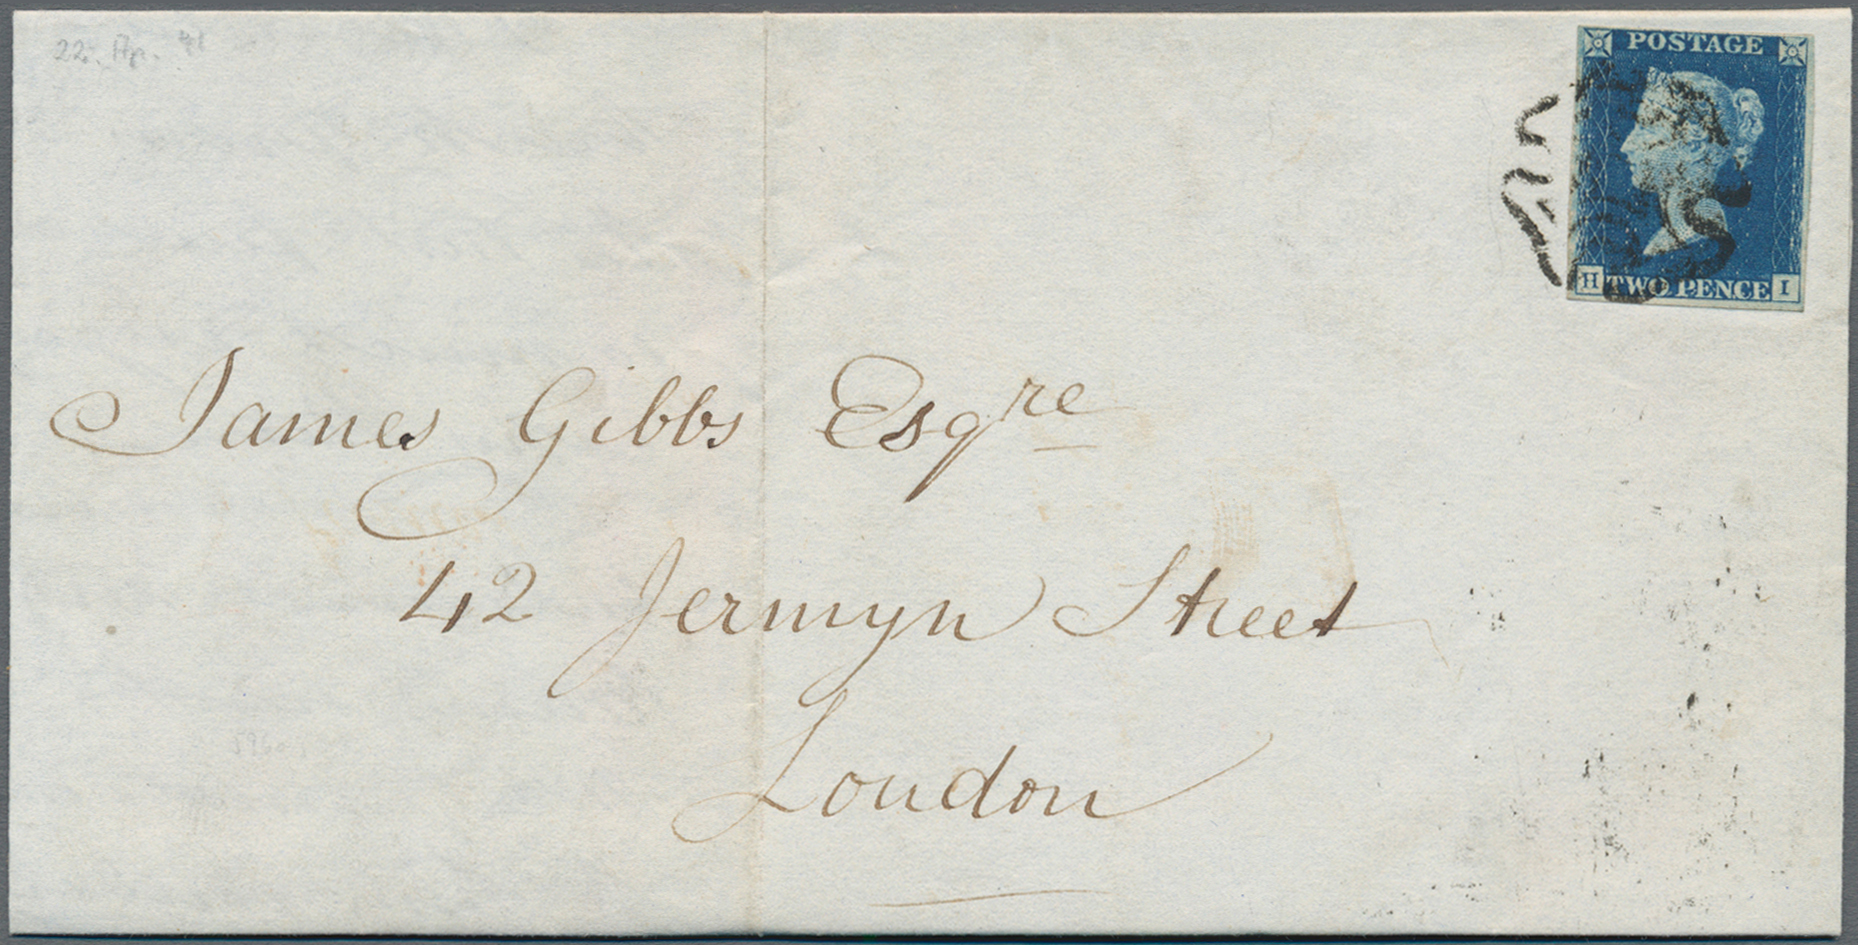 22. Ap. 41
POSTAGE
H TWO PENCE I
James Gibbs Esqre
42 Jermyn Street
London